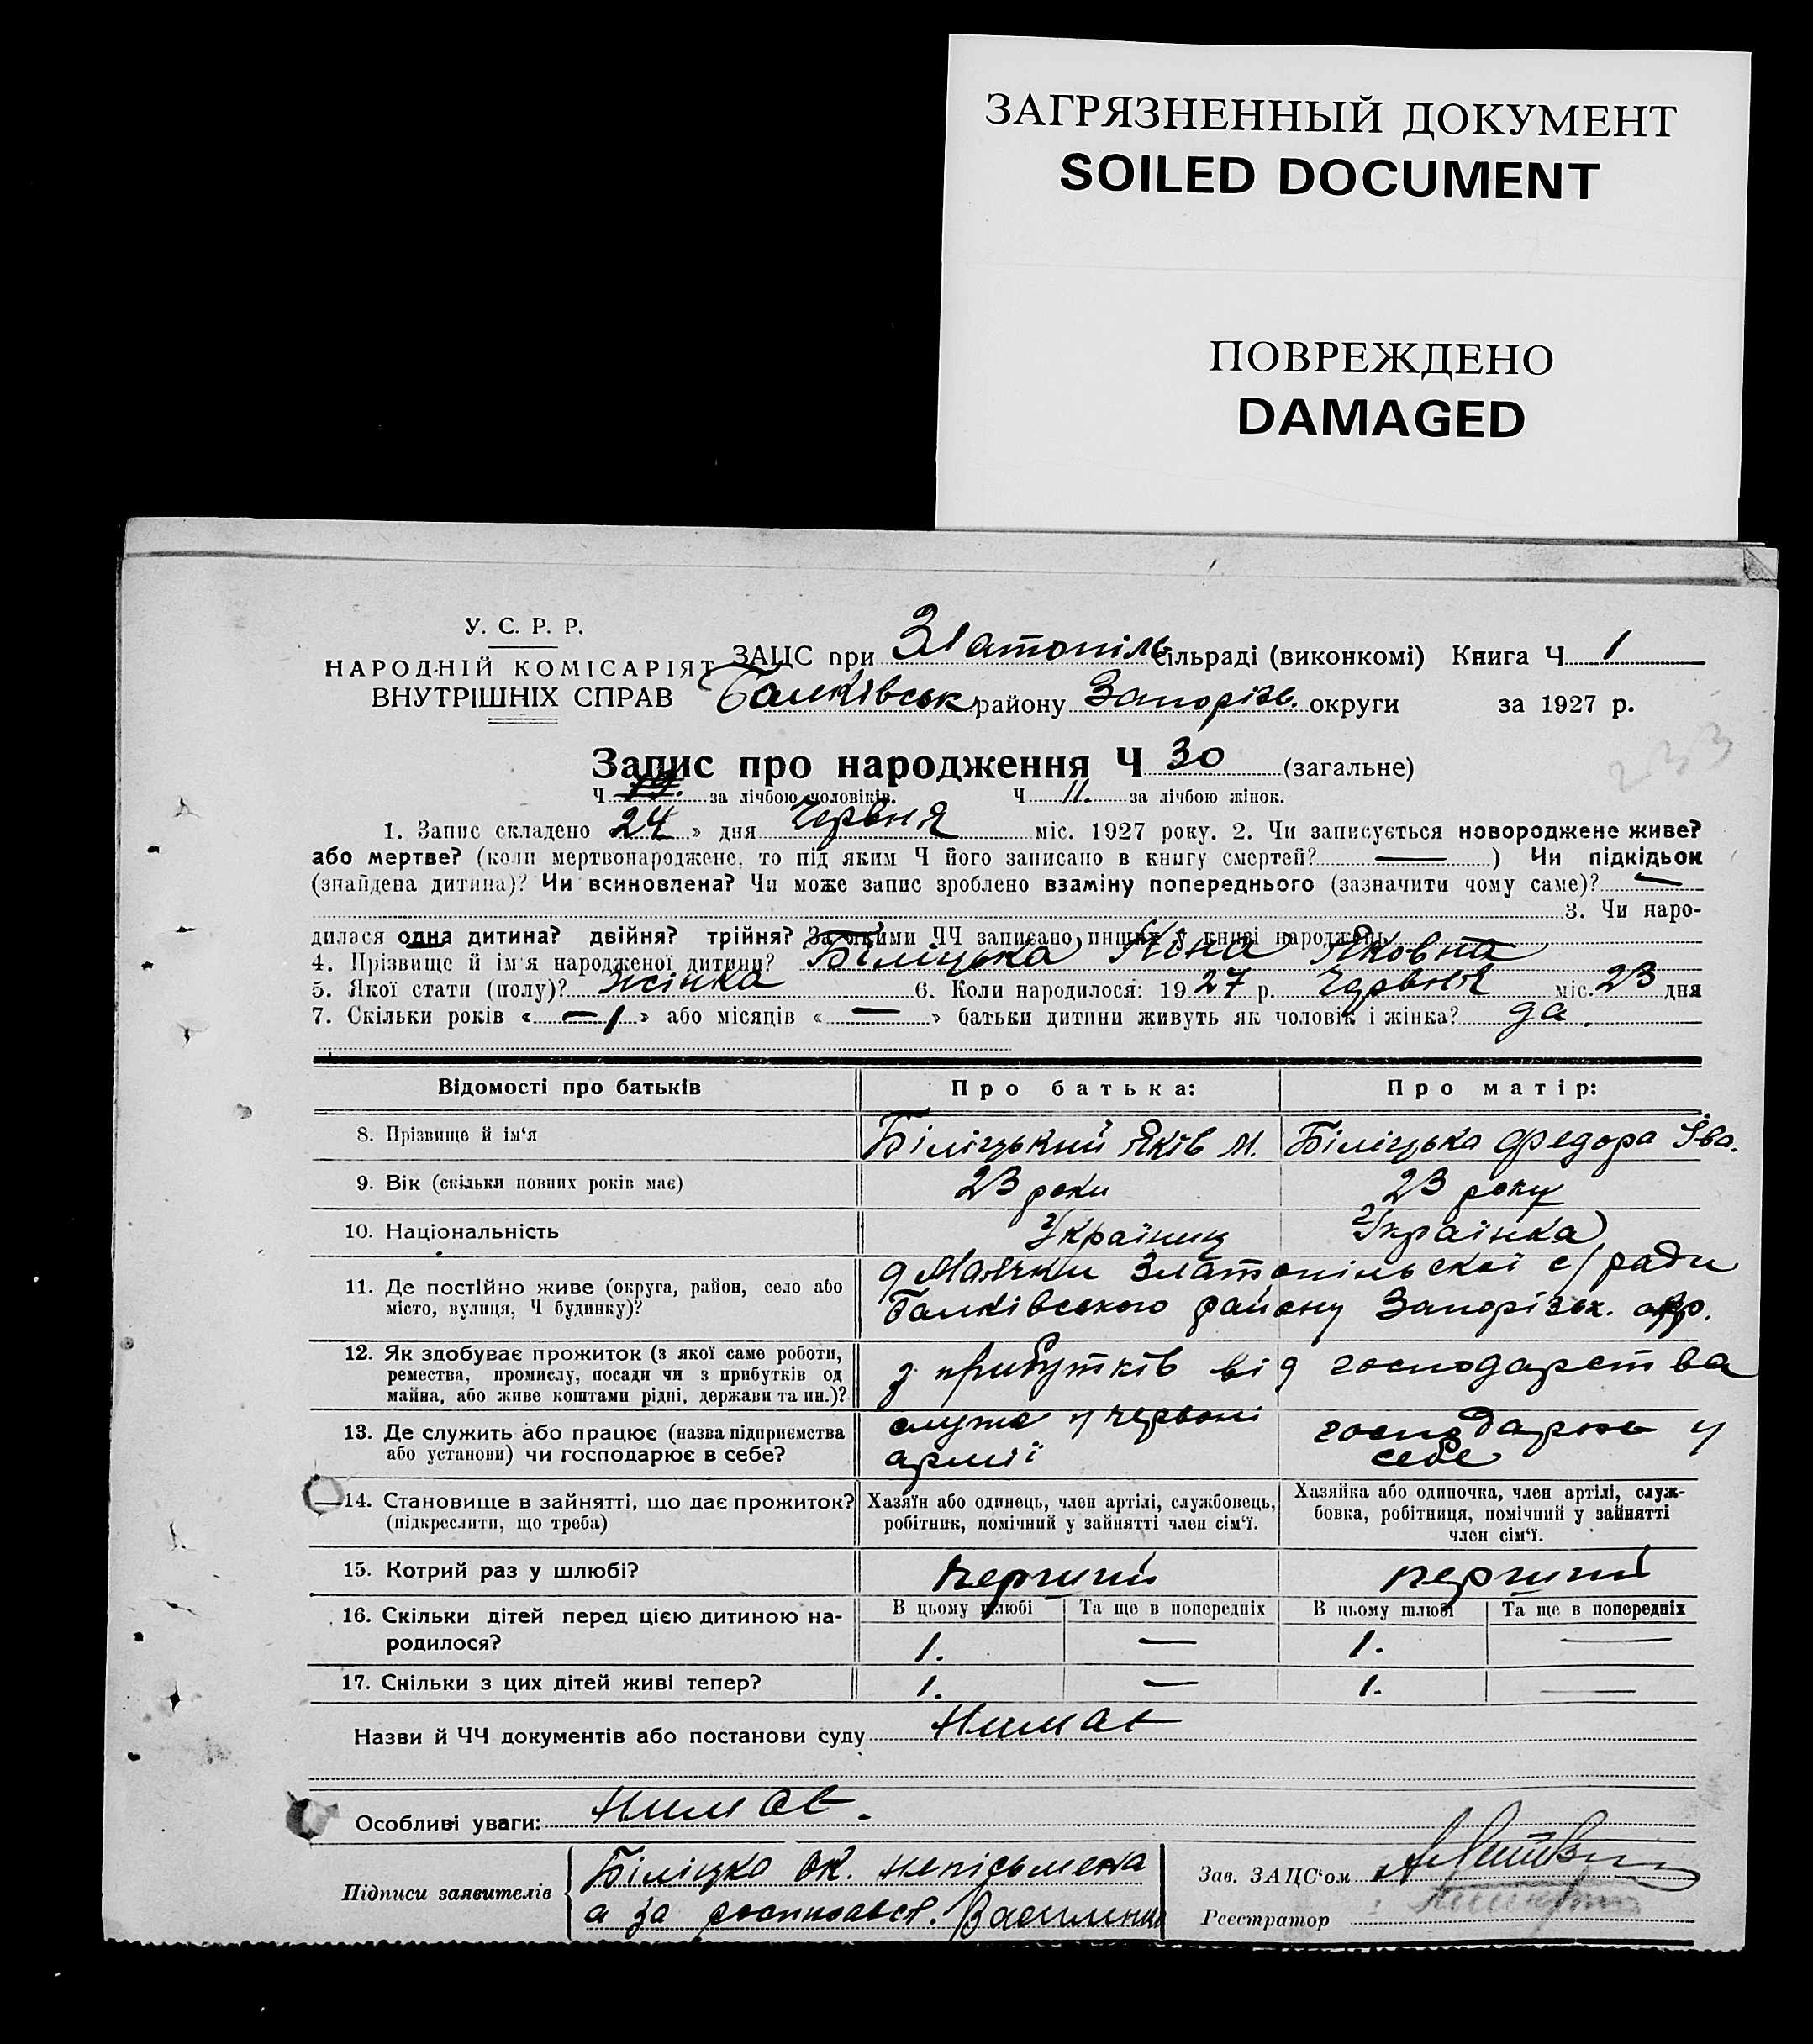 ЗАГРЯЗНЕННЫЙ ДОКУМЕНТ
SOILED DOCUMENT
ПОВРЕЖДЕНО
DAMAGED
У. С. Р. Р.
НАРОДНІЙ КОМІСАРІЯТ
ВНУТРІШНІХ СПРАВ
ЗАЦС при Златопіль сільраді (виконкомі) Книга Ч 1
Балківськ району Запорізь. округи за 1927 р.
Запис про народження Ч 30 (загальне)
Ч 19. за лічбою чоловіків. Ч 11. за лічбою жінок.
1. Запис складено 24 » дня Червня міс. 1927 року. 2. Чи записується новороджене живе?
або мертве? (коли мертвонароджене, то під яким Ч його записано в книгу смертей? — ) Чи підкідьок
(знайдена дитина)? Чи всиновлена? Чи може запис зроблено взаміну попереднього (зазначити чому саме)? —
3. Чи наро-
дилася одна дитина? двійня? трійня? За якими ЧЧ записано инших у книзі народжень
4. Прізвище й ім'я народженої дитини? Біліцька Ніна Яковна
5. Якої стати (полу)? жінка 6. Коли народилося: 1927 р. Червня міс. 23 дня
7. Скільки років « — » або місяців « — » батьки дитини живуть як чоловік і жінка? да.
Відомості про батьків Про батька: Про матір:
8. Прізвище й ім'я Біліцький Яків М. Біліцька Федора Іва.
9. Вік (скільки повних років має) 23 роки 23 року
10. Національність Українец Українка
11. Де постійно живе (округа, район, село або
місто, вулиця, Ч будинку)?
д Маячки Златопільскої с/ради
Балківського району Запорізьк. окр.
12. Як здобуває прожиток (з якої саме роботи,
ремества, промислу, посади чи з прибутків од
майна, або живе коштами рідні, держави та ин.)?
з прибутків від господарства
13. Де служить або працює (назва підприємства
або установи) чи господарює в себе?
служе у червоні
армії
господарює у
себе
14. Становище в зайнятті, що дає прожиток?
(підкреслити, що треба)
Хазяїн або одинець, член артілі, службовець,
робітник, помічний у зайнятті член сім'ї.
Хазяйка або одиночка, член артілі, служ-
бовка, робітниця, помічний у зайнятті
член сім'ї.
15. Котрий раз у шлюбі? перший перший
16. Скільки дітей перед цією дитиною на-
родилося?
В цьому шлюбі Та ще в попередніх В цьому шлюбі Та ще в попередніх
1. — 1. —
17. Скільки з цих дітей живі тепер? 1. — 1. —
Назви й ЧЧ документів або постанови суду Нимає
Особливі уваги: нимає.
Підписи заявителів
Біліцка Ок. непісьмена
а за росписавсь.
Зав. ЗАЦС'ом
Реєстратор